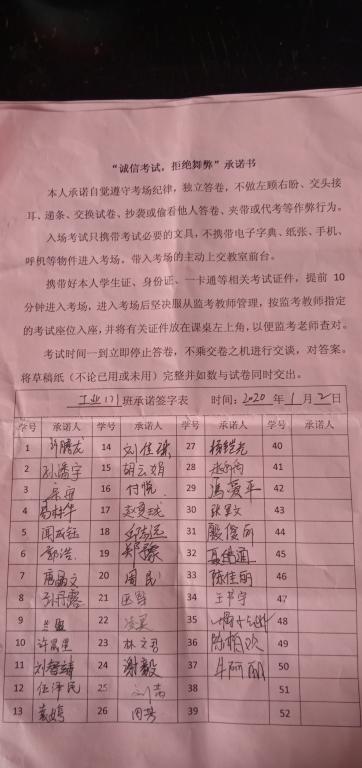 “诚信考试，拒绝舞弊”承诺书
本人承诺自觉遵守考场纪律，独立答卷，不做左顾右盼、交头接
耳、递条、交换试卷、抄袭或偷看他人答卷、夹带或代考等作弊行为。
入场考试只携带考试必要的文具，不携带电子字典、纸张、手机、
呼机等物件进入考场。带入考场的主动上交教室前台。
携带好本人学生证、身份证、一卡通等相关考试证件，提前 10
分钟进入考场，进入考场后坚决服从监考教师管理，按监考教师指定
的考试座位入座，并将有关证件放在课桌左上角，以便监考老师查对。
考试时间一到立即停止答卷，不乘交卷之机进行交谈，对答案。
将草稿纸（不论已用或未用）完整并如数与试卷同时交出。
工业171班承诺签字表 时间：2020 年 1 月 2 日
学号 承诺人 学号 承诺人 学号 承诺人 学号 承诺人
1 许腾龙 14 刘佳琛 27 40
2 孙潘宇 15 胡云娟 28 41
3 16 付悦 29 冯爱平 42
4 17 30 43
5 18 31 殷俊 44
6 郭浩 19 郑豫 32 45
7 唐昌文 20 周民 33 陈佳丽 46
8 孙丹蓉 21 34 王书宇 47
9 兰 22 凌 35 48
10 许 23 林文君 36 陈 欢 49
11 刘智靖 24 谢毅 37 牛丽丽 50
12 任泽民 25 38 51
13 袁婷 26 周芳 39 52